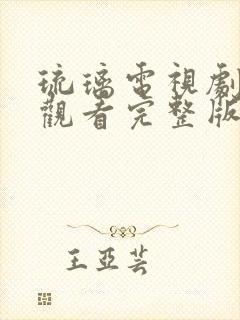 琉璃電視劇
觀看完整版
王亞芸